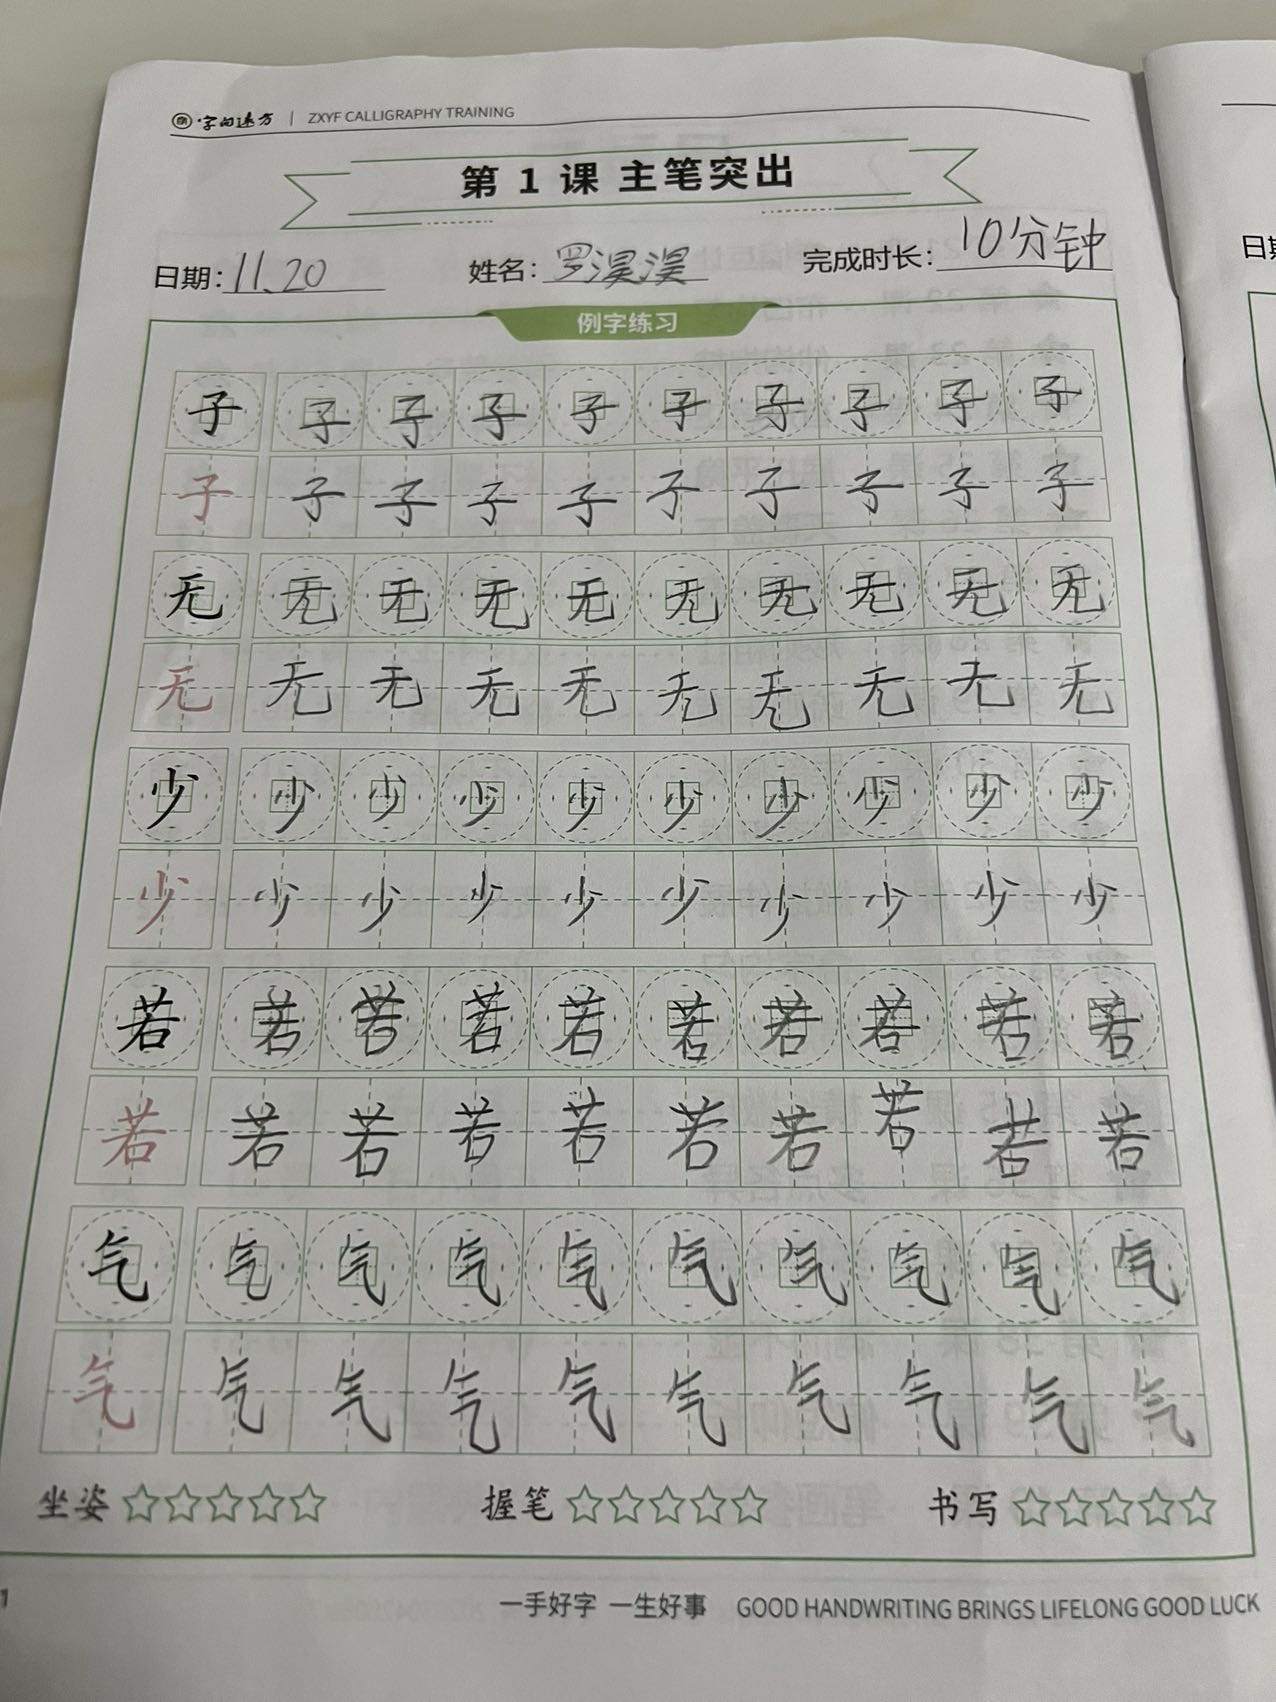 字向远方 | ZXYF CALLIGRAPHY TRAINING
第 1 课 主笔突出
日期: 11.20 姓名: 罗淏淏 完成时长: 10分钟
例字练习
子 子 子 子 子 子 子 子 子 子
子 子 子 子 子 子 子 子 子 子
无 无 无 无 无 无 无 无 无 无
无 无 无 无 无 无 无 无 无 无
少 少 少 少 少 少 少 少 少 少
少 少 少 少 少 少 少 少 少 少
若 若 若 若 若 若 若 若 若 若
若 若 若 若 若 若 若 若 若 若
气 气 气 气 气 气 气 气 气 气
气 气 气 气 气 气 气 气 气 气
坐姿 ☆☆☆☆☆ 握笔 ☆☆☆☆☆ 书写 ☆☆☆☆☆
1 一手好字 一生好事 GOOD HANDWRITING BRINGS LIFELONG GOOD LUCK